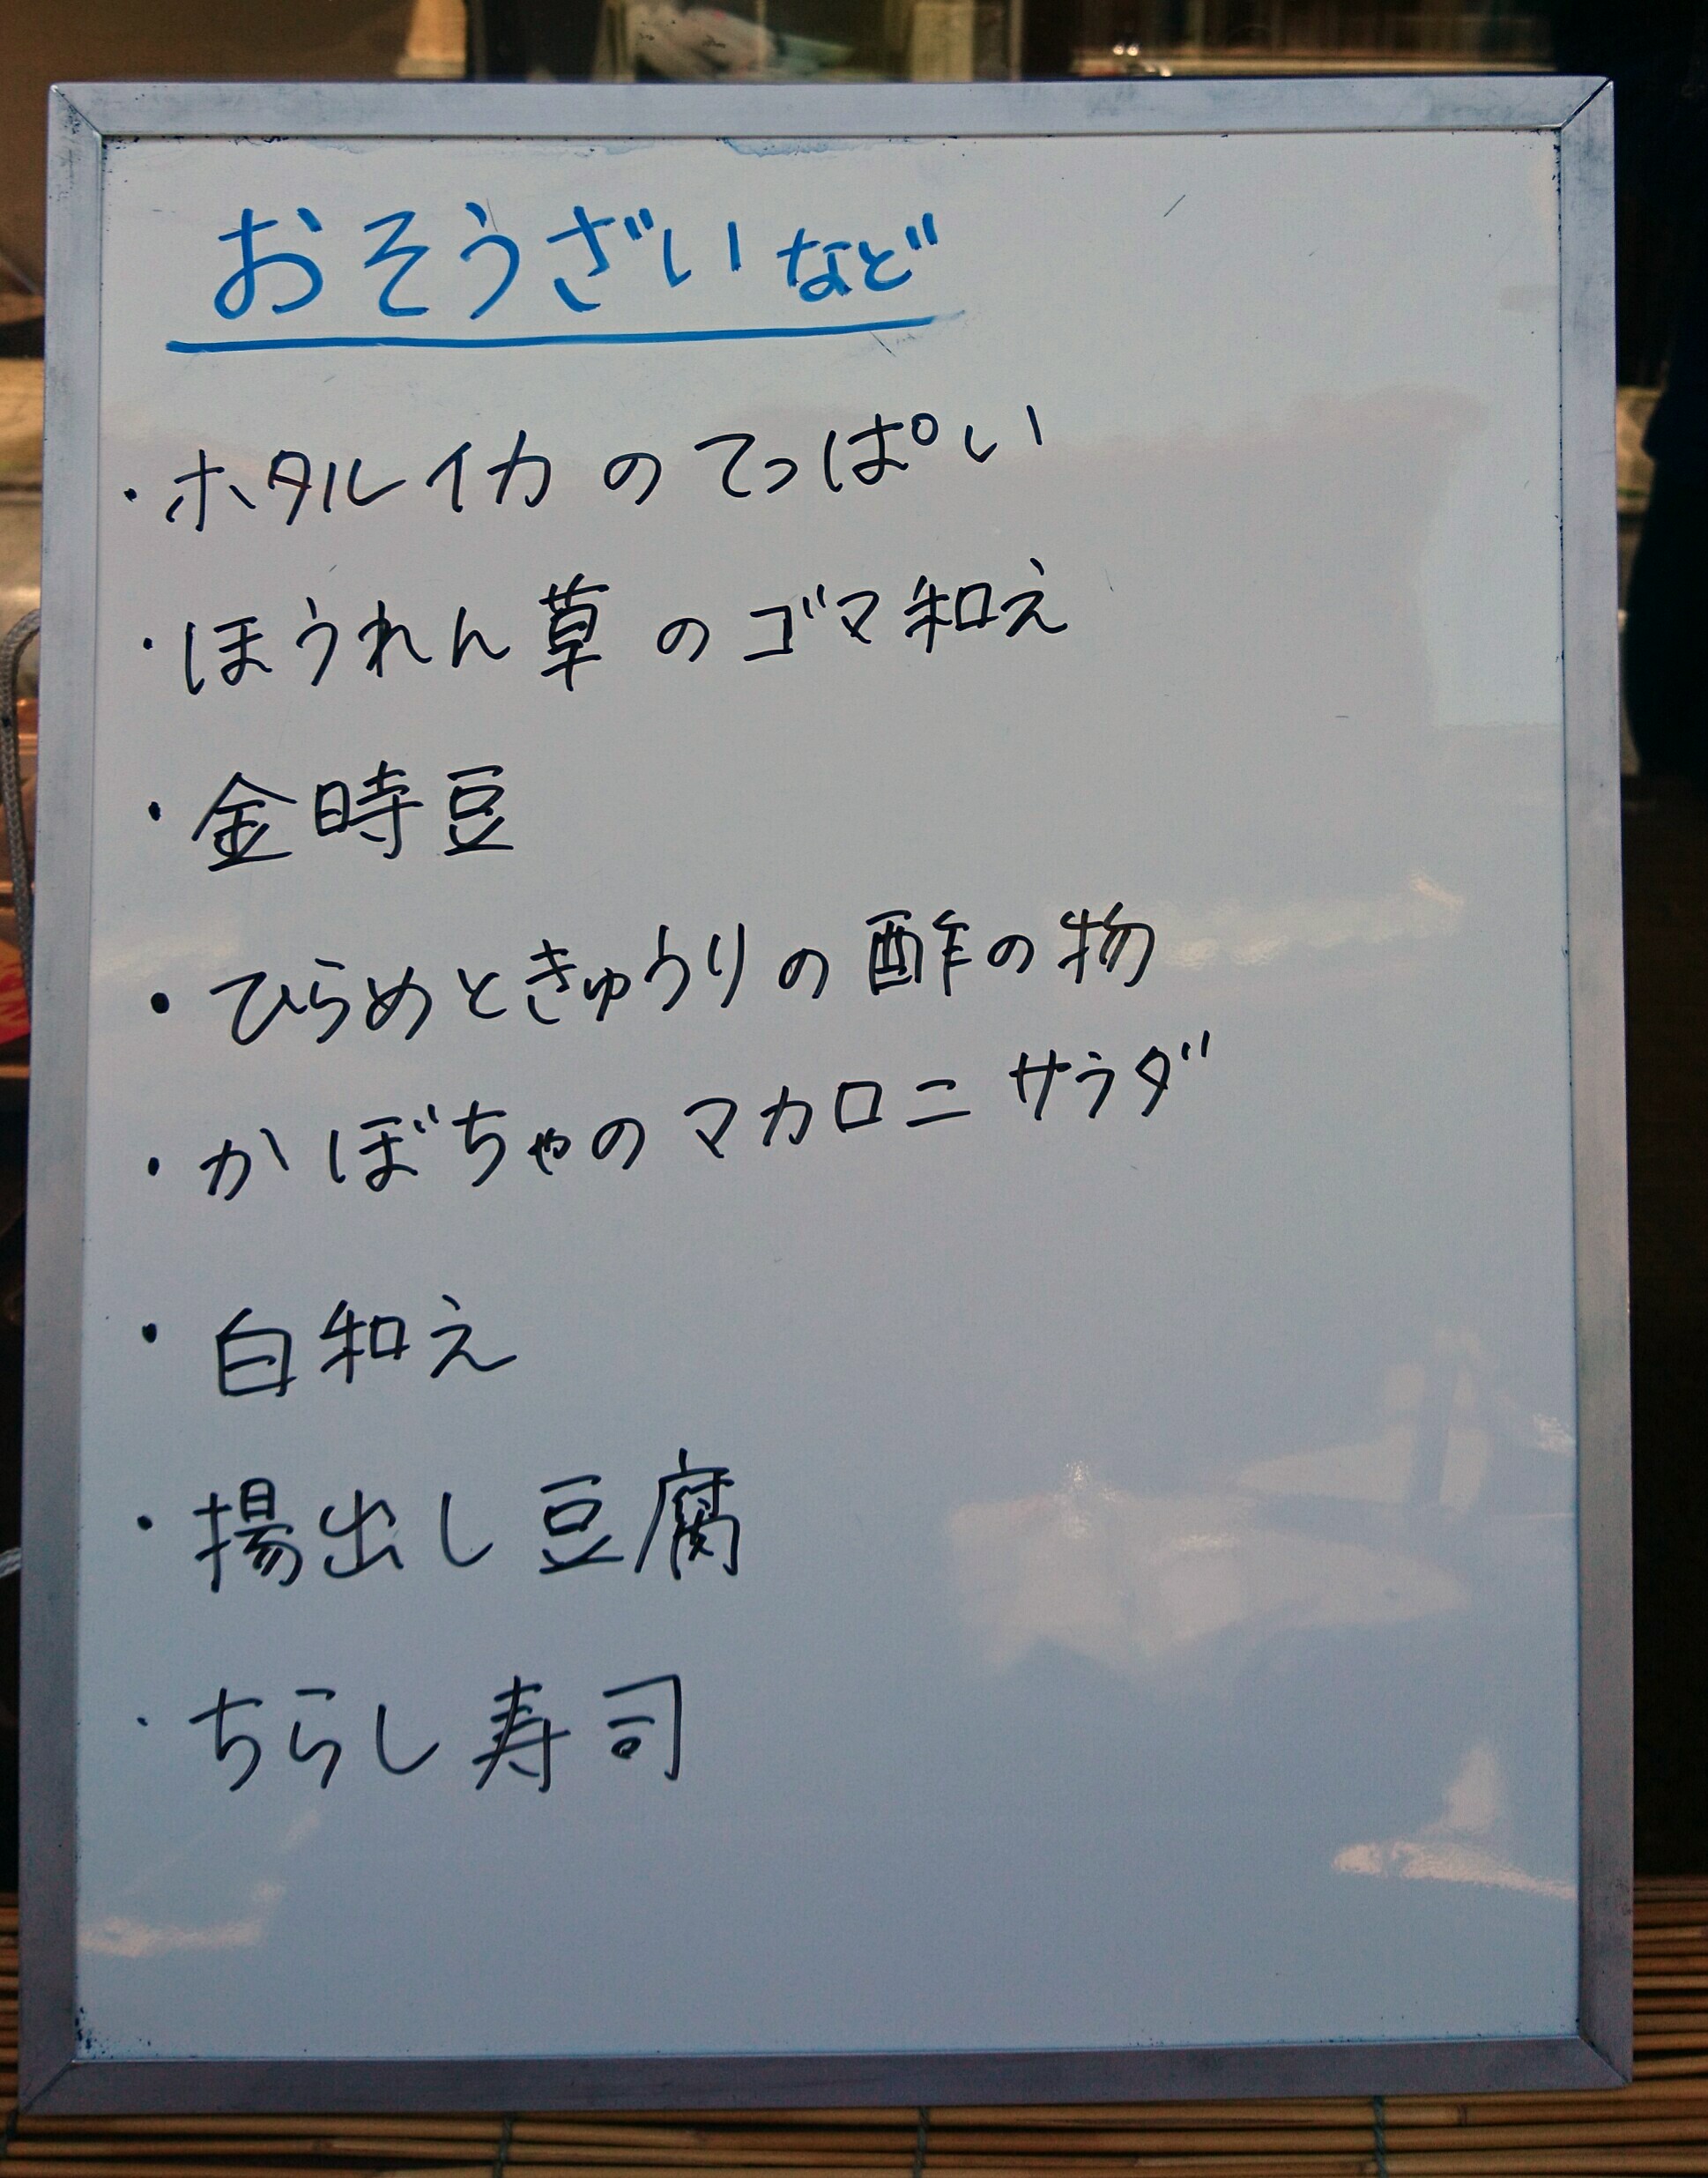 おそうざいなど
・ホタルイカのてっぱい
・ほうれん草のゴマ和え
・金時豆
・ひらめときゅうりの酢の物
・かぼちゃのマカロニサラダ
・白和え
・揚出し豆腐
・ちらし寿司